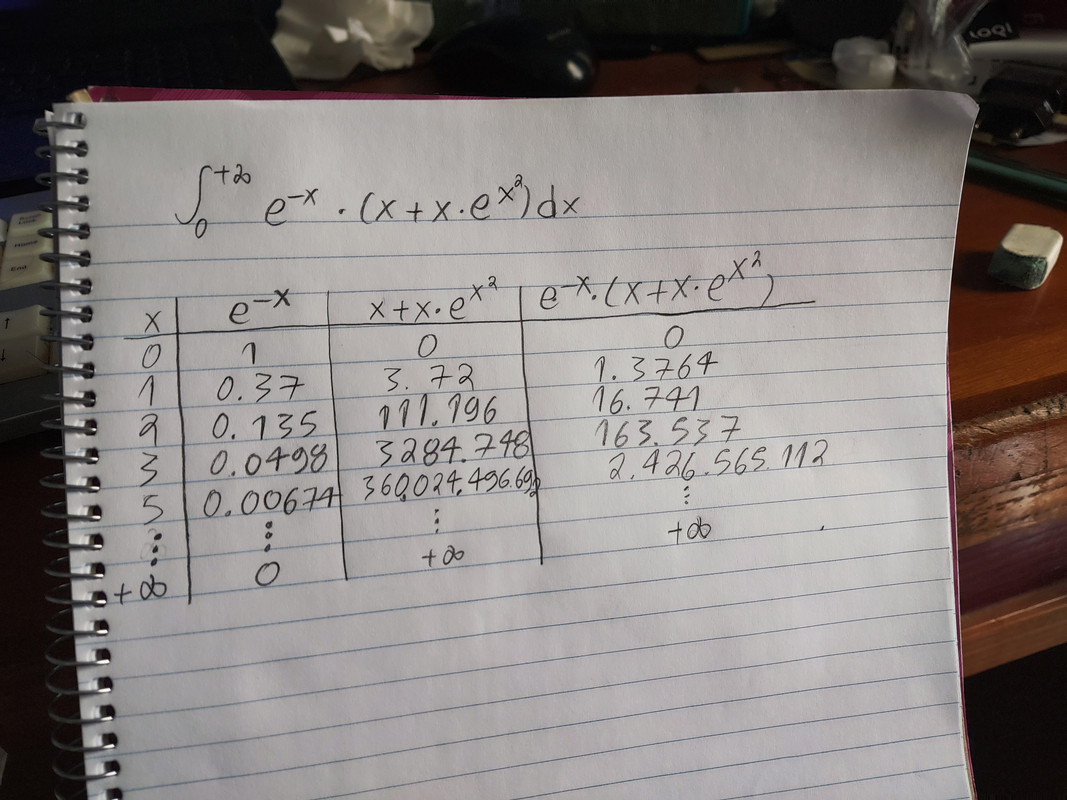 ∫₀^{+∞} e^{-x} · (x + x · e^{x²}) dx
x | e^{-x} | x + x · e^{x²} | e^{-x} · (x + x · e^{x²})
0 | 1 | 0 | 0
1 | 0.37 | 3.72 | 1.3764
2 | 0.135 | 111.196 | 16.741
3 | 0.0498 | 3284.748 | 163.537
5 | 0.00674 | 360,024,496.692 | 2.426.565.112
⋮ | ⋮ | ⋮ | ⋮
+∞ | 0 | +∞ | +∞
Home
End
LOGI